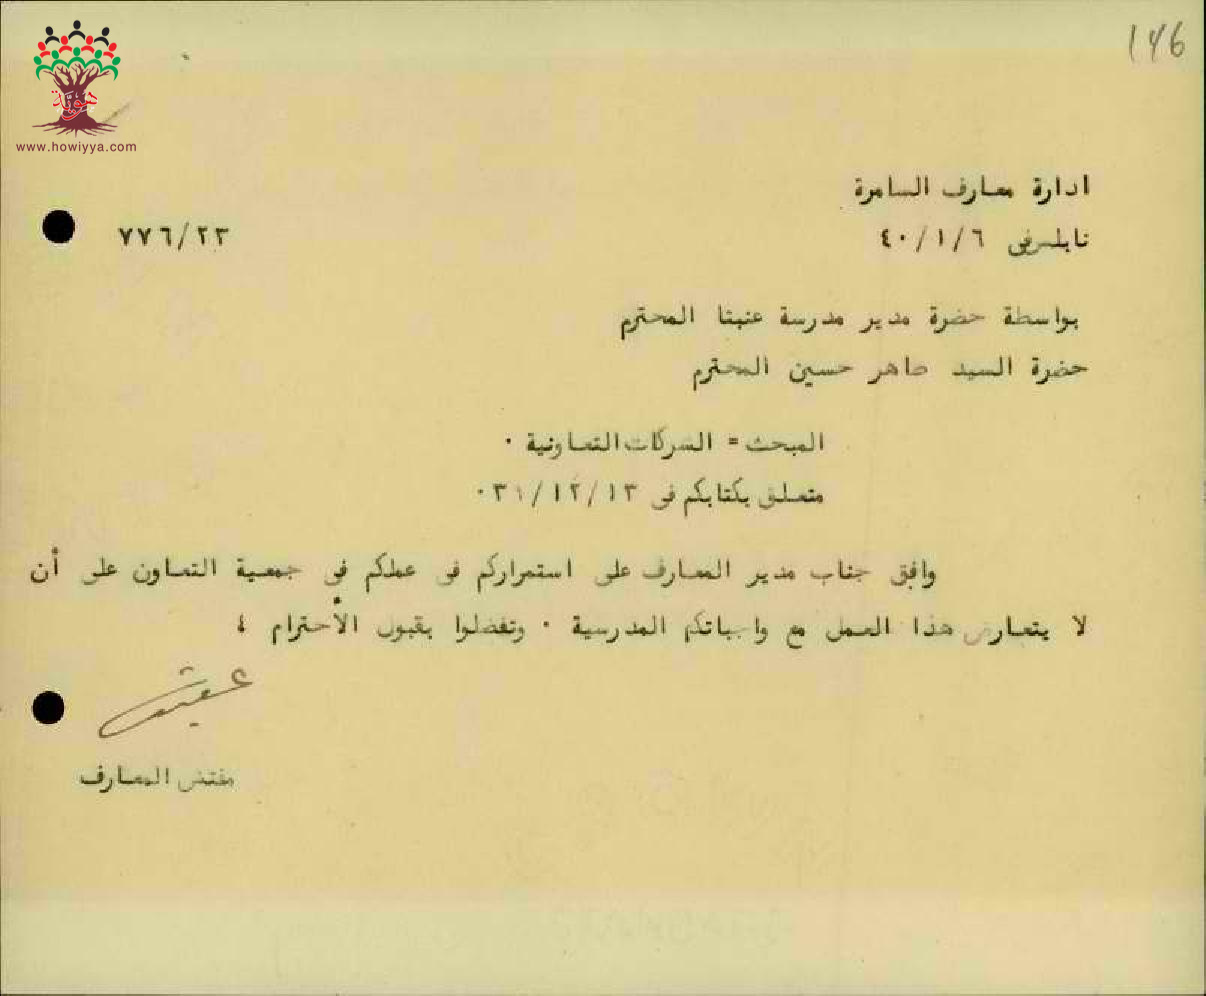 146
هوية
www.howiyya.com
ادارة معارف السامرة
نابلس في ٤٠/١/٦
٧٧٦/٢٣
بواسطة حضرة مدير مدرسة عنبتا المحترم
حضرة السيد ماهر حسين المحترم
المبحث = الشركات التعاونية ٠
متعلق بكتابكم في ٣٩/١٢/١٣٠
وافق جناب مدير المعارف على استمراركم في عملكم في جمعية التعاون على أن
لا يتعارض هذا العمل مع واجباتكم المدرسية ٠ وتفضلوا بقبول الأحترام ٤
مفتش المعارف